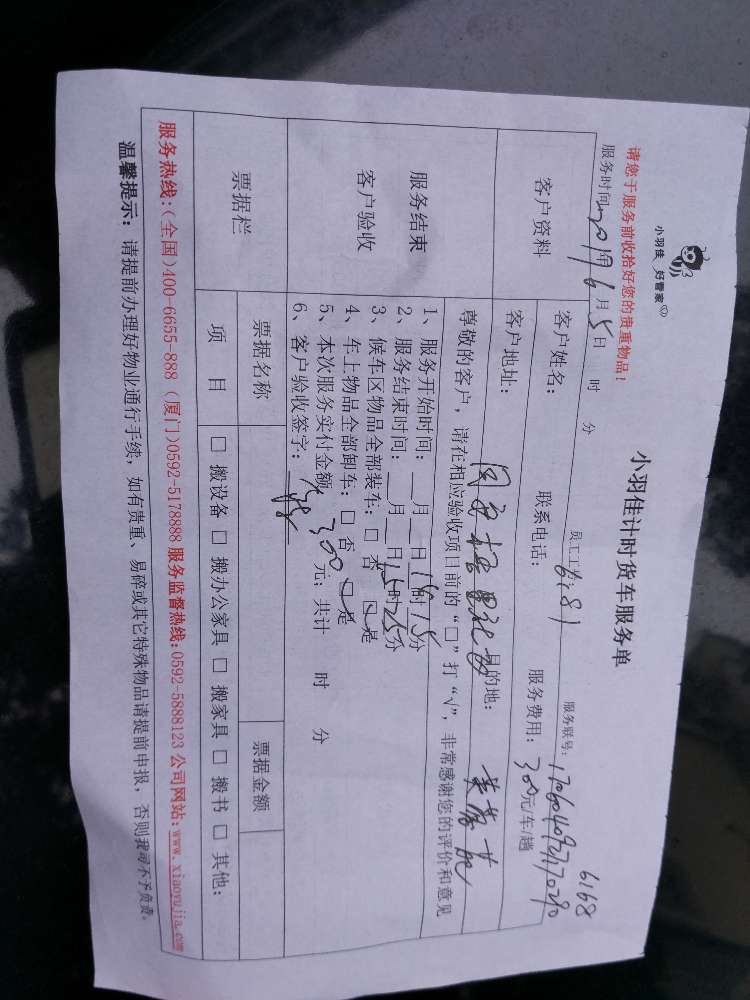 小羽佳 好管家
小羽佳计时货车服务单
请您于服务前收拾好您的贵重物品！
服务时间：2019年6月5日 时 分 员工工号：6181 服务联号：170604092170290
6168
客户资料
客户姓名： 联系电话： 服务费用：300元车/趟
客户地址： 目的地：
尊敬的客户，请在相应验收项目前的“□”打“√”，非常感谢您的评价和意见
服务结束
客户验收
1、服务开始时间：__月__日14时15分
2、服务结束时间：__月__日15时25分
3、候车区物品全部装车：□ 否 ☑ 是
4、车上物品全部卸车：□ 否 ☑ 是
5、本次服务实付金额 300 元，共计 时 分
6、客户验收签字：
票据栏
票据名称 票据金额
项 目 □ 搬设备 □ 搬办公家具 □ 搬家具 □ 搬书 □ 其他：
服务热线：(全国)400-6655-888 (厦门)0592-5178888 服务监督热线:0592-5888123 公司网站:www.xiaoyujia.com
温馨提示：请提前办理好物业通行手续，如有贵重、易碎或其它特殊物品请提前申报，否则我司不予负责。